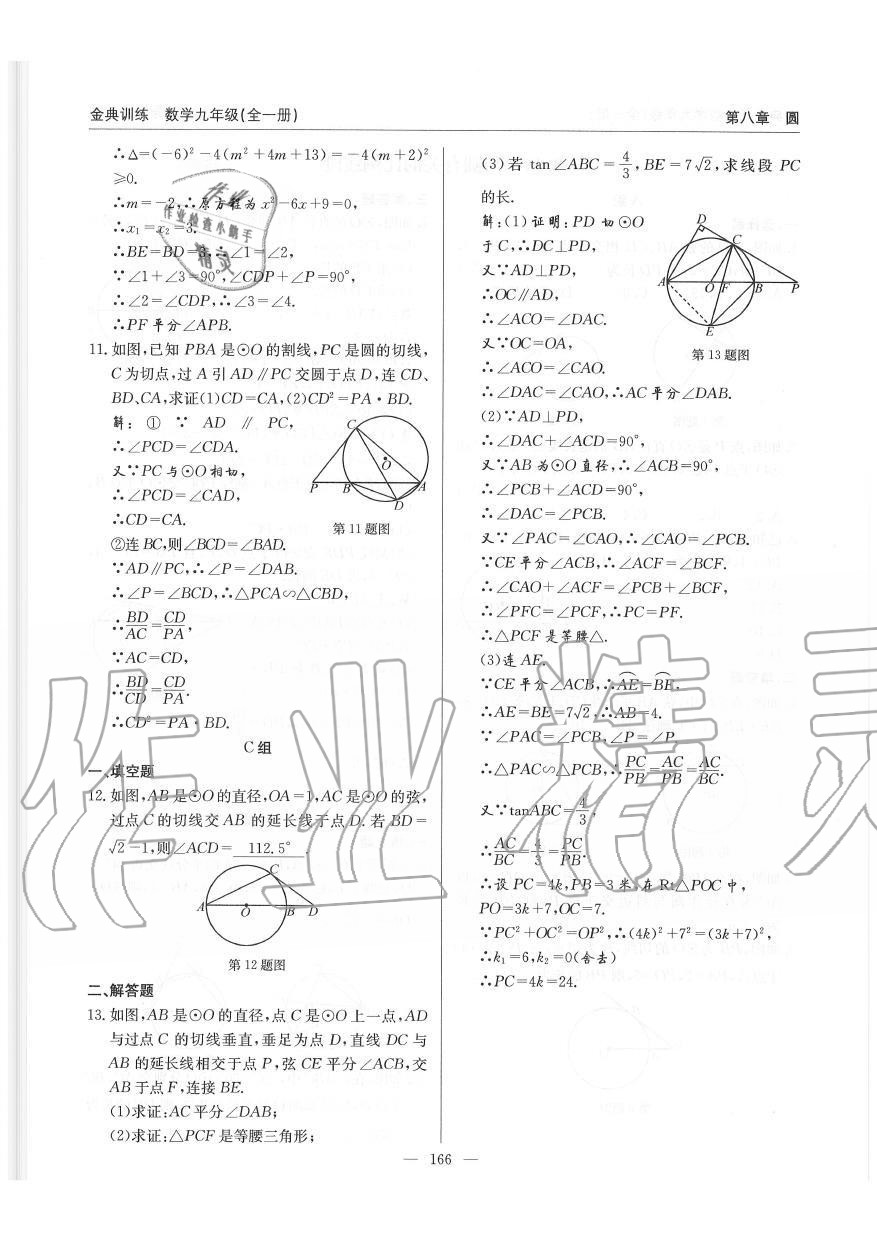 金典训练 数学九年级(全一册)
第八章 圆
∴Δ=(-6)²-4(m²+4m+13)=-4(m+2)²
≥0.
∴m=-2,∴原方程为 x²-6x+9=0,
∴x₁=x₂=3.
∴BE=BD=3,∴∠1=∠2,
∵∠1+∠3=90°,∠CDP+∠P=90°,
∴∠2=∠CDP,∴∠3=∠4.
∴PF 平分∠APB.
11. 如图,已知 PBA 是⊙O 的割线,PC 是圆的切线,
C 为切点,过 A 引 AD∥PC 交圆于点 D,连 CD、
BD、CA,求证(1)CD=CA,(2)CD²=PA·BD.
解: ① ∵ AD ∥ PC,
∴∠PCD=∠CDA.
又∵PC 与⊙O 相切,
∴∠PCD=∠CAD,
∴CD=CA.
C
O
P
B
A
D
第 11 题图
②连 BC,则∠BCD=∠BAD.
∵AD∥PC,∴∠P=∠DAB.
∴∠P=∠BCD,∴△PCA∽△CBD,
∴BD/AC=CD/PA,
∵AC=CD,
∴BD/CD=CD/PA.
∴CD²=PA·BD.
C 组
一、填空题
12. 如图,AB 是⊙O 的直径,OA=1,AC 是⊙O 的弦,
过点 C 的切线交 AB 的延长线于点 D. 若 BD=
√2-1,则∠ACD= 112.5° .
C
A
O
B
D
第 12 题图
二、解答题
13. 如图,AB 是⊙O 的直径,点 C 是⊙O 上一点,AD
与过点 C 的切线垂直,垂足为点 D,直线 DC 与
AB 的延长线相交于点 P,弦 CE 平分∠ACB,交
AB 于点 F,连接 BE.
(1)求证:AC 平分∠DAB;
(2)求证:△PCF 是等腰三角形;
(3)若 tan ∠ABC=4/3,BE=7√2,求线段 PC
的长.
解:(1)证明:PD 切⊙O
于 C,∴DC⊥PD,
又∵AD⊥PD,
∴OC∥AD,
∴∠ACO=∠DAC.
又∵OC=OA,
∴∠ACO=∠CAO.
∴∠DAC=∠CAO,∴AC 平分∠DAB.
D
C
A
O
F
B
P
E
第 13 题图
(2)∵AD⊥PD,
∴∠DAC+∠ACD=90°,
又∵AB 为⊙O 直径,∴∠ACB=90°,
∴∠PCB+∠ACD=90°,
∴∠DAC=∠PCB.
又∵∠PAC=∠CAO,∴∠CAO=∠PCB.
∵CE 平分∠ACB,∴∠ACF=∠BCF.
∴∠CAO+∠ACF=∠PCB+∠BCF,
∴∠PFC=∠PCF,∴PC=PF.
∴△PCF 是等腰△.
(3)连 AE.
∵CE 平分∠ACB,∴AE=BE,
∴AE=BE=7√2,∴AB=4.
∵∠PAC=∠PCB,∠P=∠P
∴△PAC∽△PCB,∴PC/PB=AC/PB=AC/BC.
又∵tanABC=4/3,
∴AC/BC=4/3=PC/PB.
∴设 PC=4k,PB=3 米,在 Rt△POC 中,
PO=3k+7,OC=7.
∵PC²+OC²=OP²,∴(4k)²+7²=(3k+7)²,
∴k₁=6,k₂=0(舍去)
∴PC=4k=24.
— 166 —
作业
作业检查小助手
精灵
作业精灵